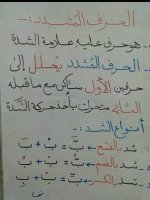 الحرف المُشدد :-
- هو حرف عليه علامة الشدة
- الحرف المُشدد يُحلل إلى
حرفين الأول ساكن مع ما قبله
الثاني متحرك يأخذ حركة الشدة
أنواع الشد :-
- شد بالفتح ← بَّ = بْ + بَ
- شد بالضم ← بُّ = بْ + بُ
- شد بالكسر ← بِّ = بْ + بِ